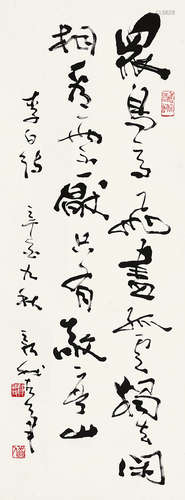 眾鳥高飛盡孤雲獨去閑
相看兩不厭只有敬亭山
李白詩 辛亥九秋